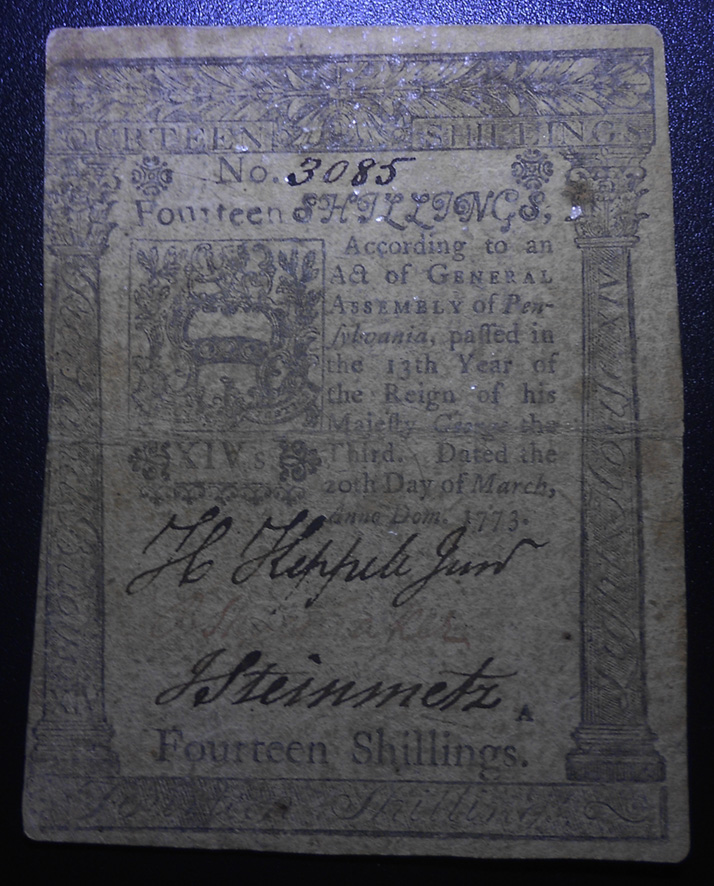 OURTEEN SHILLINGS
No. 3085
Fourteen SHILLINGS,
According to an
Act of GENERAL
ASSEMBLY of Pen-
ſylvania, paſſed in
the 13th Year of
the Reign of his
Majeſty George the
Third. Dated the
20th Day of March,
Anno Dom. 1773.
XIV s
H Keppele Junr
J Steinmetz
A
Fourteen Shillings.
Shillings